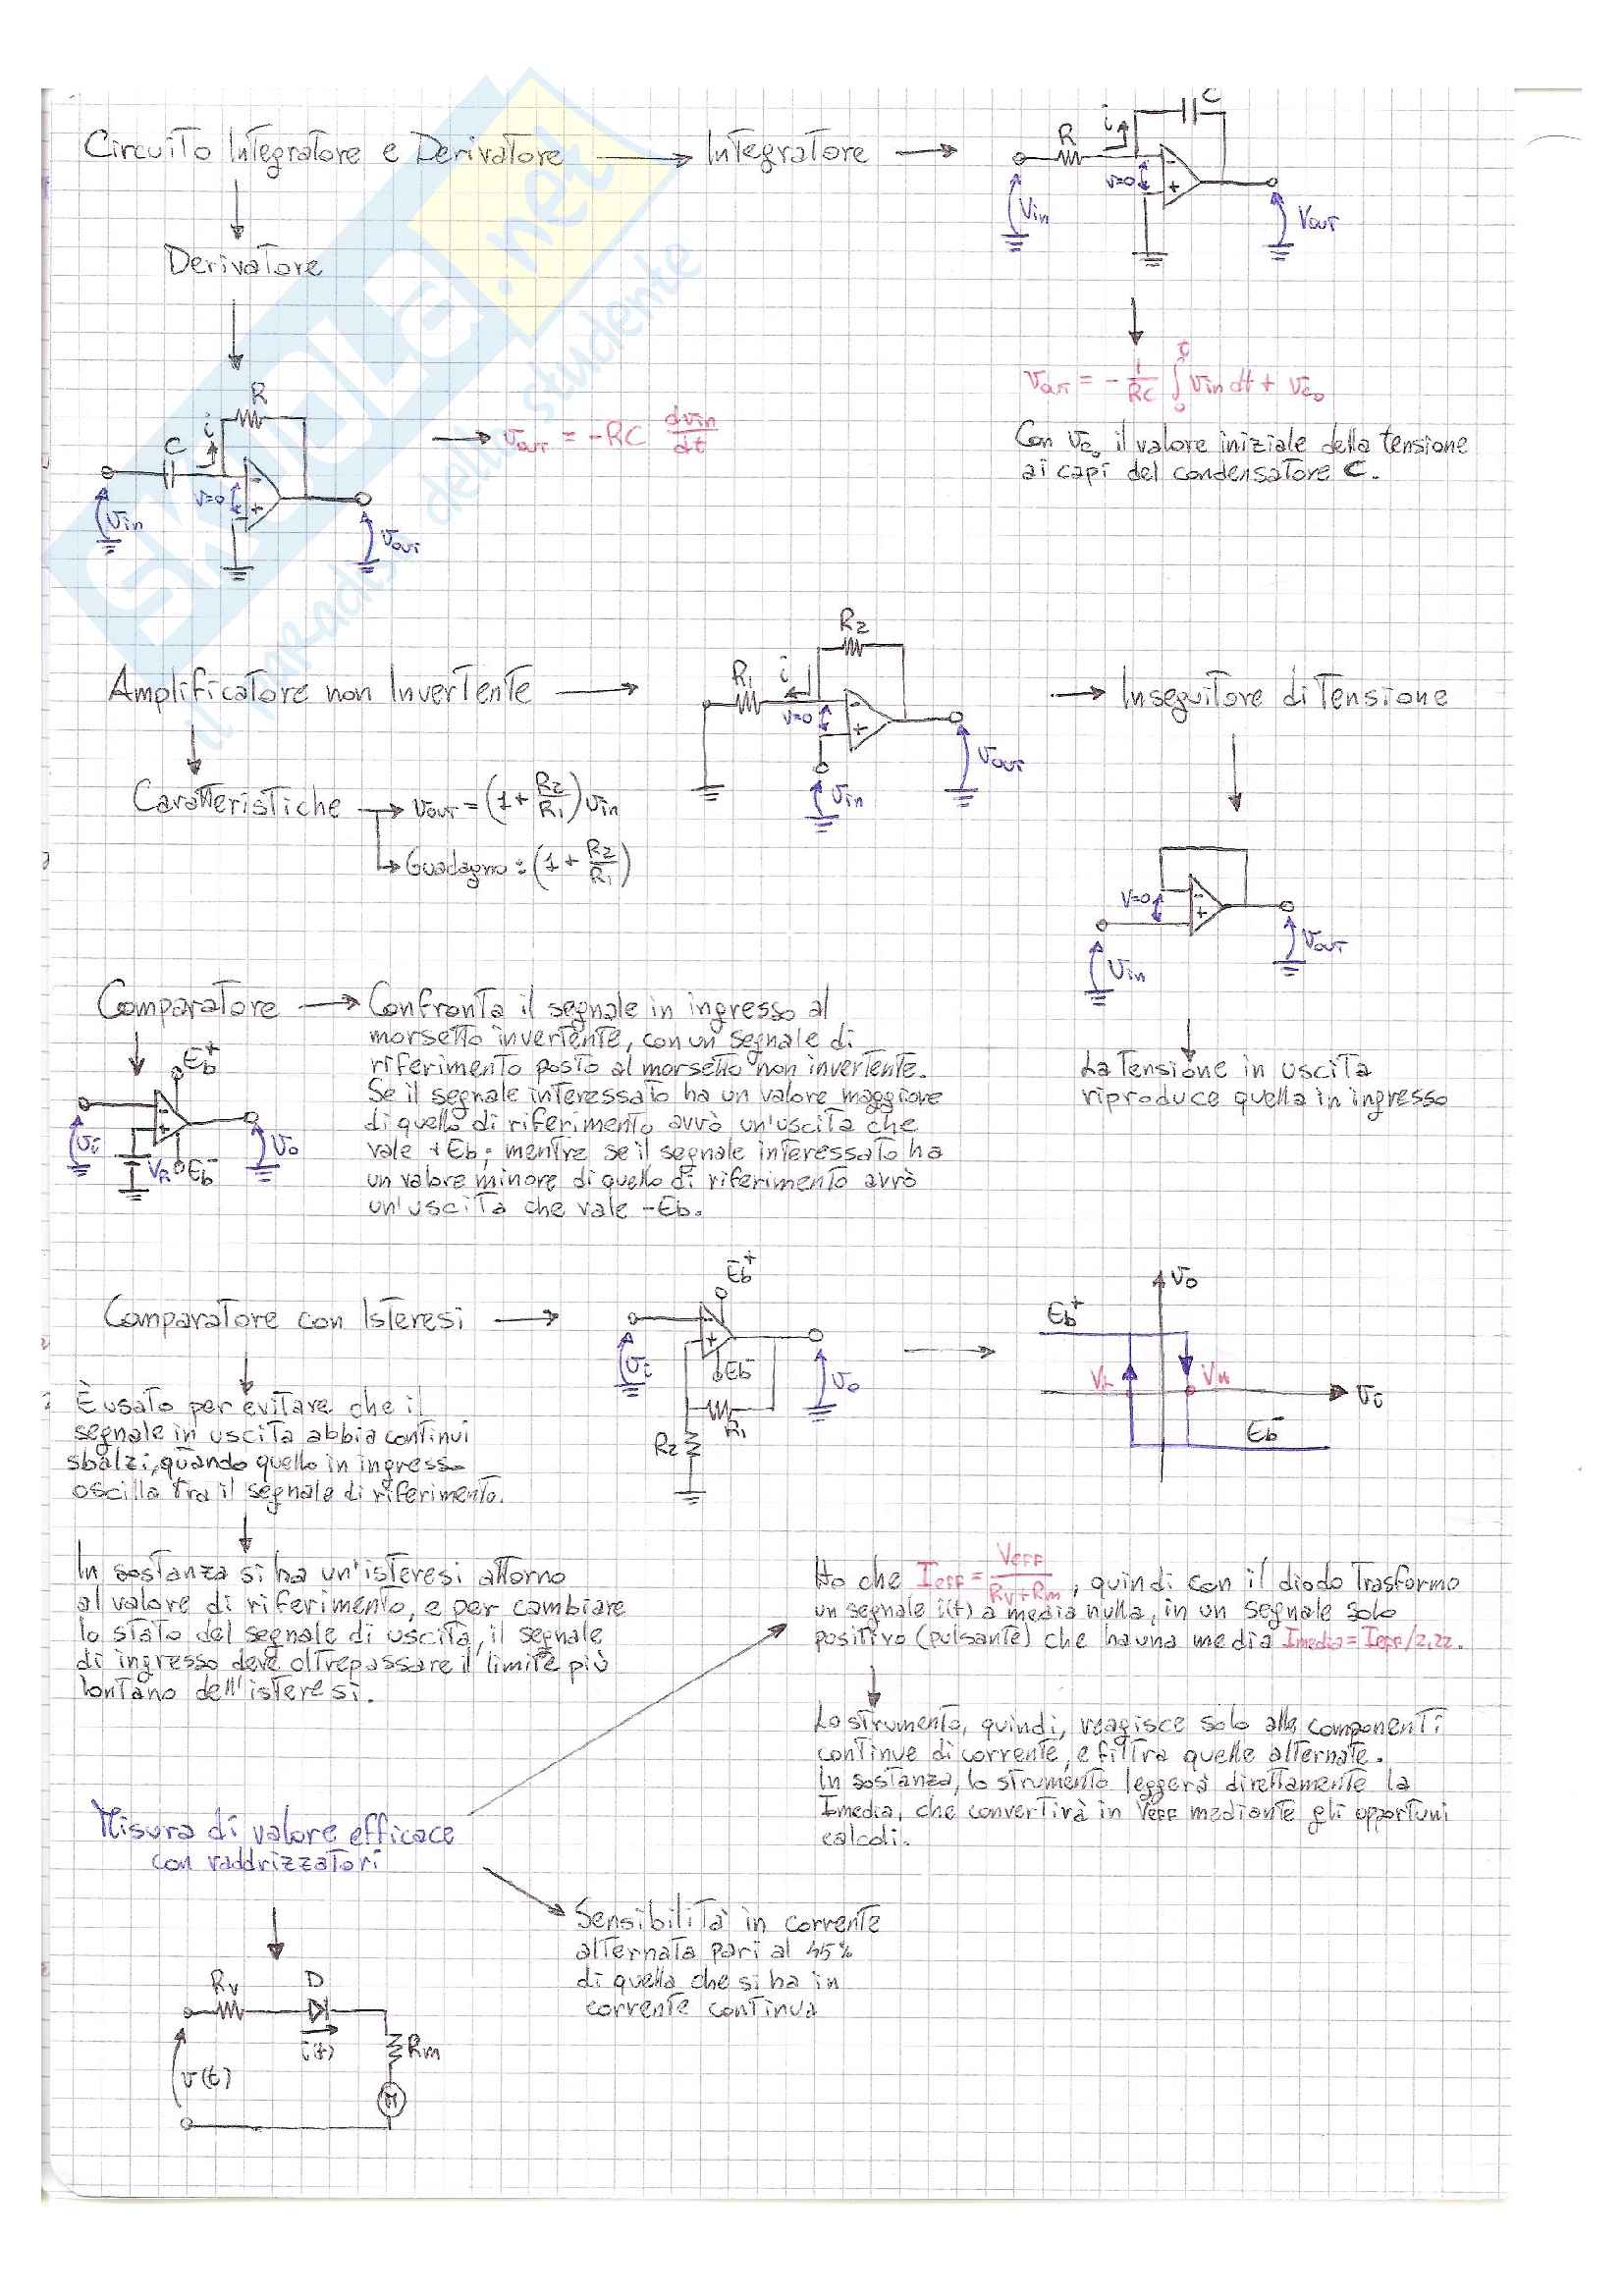 Circuito Integratore e Derivatore → Integratore →
C
R
i
V=0
-
+
Vin
Vout
Derivatore
R
i
C
V=0
-
+
Vin
Vout
Vout = -RC dvin/dt
Vout = -1/RC ∫₀ᵗ Vin dt + Vc₀
Con Vc₀ il valore iniziale della tensione
ai capi del condensatore C.
SKUOLA.net
il paradiso dello studente
Amplificatore non Invertente →
R2
R1
i
V=0
-
+
Vin
Vout
→ Inseguitore di Tensione
Caratteristiche → Vout = (1 + R2/R1) Vin
→ Guadagno: (1 + R2/R1)
V=0
-
+
Vin
Vout
La Tensione in uscita
riproduce quella in ingresso
Comparatore → Confronta il segnale in ingresso al
morsetto invertente, con un segnale di
riferimento posto al morsetto non invertente.
Se il segnale interessato ha un valore maggiore
di quello di riferimento avrò un'uscita che
vale +Eb; mentre se il segnale interessato ha
un valore minore di quello di riferimento avrò
un'uscita che vale -Eb.
Eb+
-
+
Vi
VR
Eb-
Vo
Comparatore con Isteresi →
Eb+
-
+
Vi
Eb-
Vo
R1
R2
Vo
Eb+
VL
VH
Vi
Eb-
È usato per evitare che il
segnale in uscita abbia continui
sbalzi, quando quello in ingresso
oscilla tra il segnale di riferimento.
In sostanza si ha un'isteresi attorno
al valore di riferimento, e per cambiare
lo stato del segnale di uscita, il segnale
di ingresso deve oltrepassare il limite più
lontano dell'isteresi.
Ho che Ieff = Veff/Rv+Rm, quindi con il diodo Trasformo
un segnale i(t) a media nulla, in un segnale solo
positivo (pulsante) che ha una media Imedia = Ieff/2,22.
Lo strumento, quindi, reagisce solo alle componenti
continue di corrente, e filtra quelle alternate.
In sostanza, lo strumento leggerà direttamente la
Imedia, che convertirà in Veff mediante gli opportuni
calcoli.
Misura di valore efficace
con raddrizzatori
Sensibilità in corrente
alternata pari al 45%
di quella che si ha in
corrente continua
Rv
D
i(t)
Rm
v(t)
M